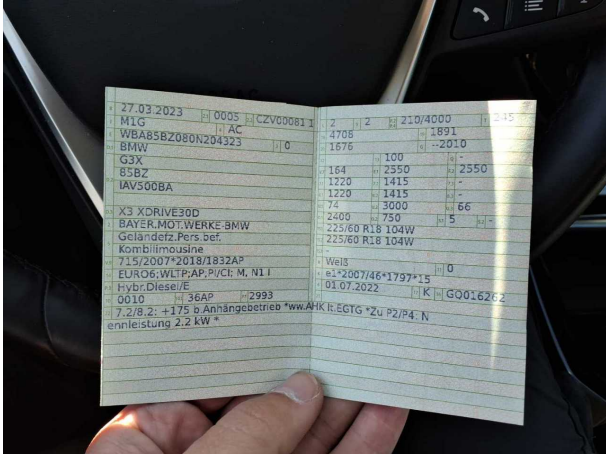 27.03.2023 0005 CZV00081 1
M1G AC
WBA85BZ080N204323 0
BMW
G3X
85BZ
IAV500BA
X3 XDRIVE30D
BAYER.MOT.WERKE-BMW
Geländefz.Pers.bef.
Kombilimousine
715/2007*2018/1832AP
EURO6;WLTP;AP,PI/CI; M, N1 I
Hybr.Diesel/E
0010 36AP 2993
7.2/8.2: +175 b.Anhängebetrieb *ww.AHK lt.EGTG *Zu P2/P4: N
ennleistung 2.2 kW *
2 2 210/4000 245
4708 1891
1676 --2010
100 -
164 2550 2550
1220 1415 -
1220 1415 -
74 3000 66
2400 750 5 -
225/60 R18 104W
225/60 R18 104W
-
Weiß 0
e1*2007/46*1797*15
01.07.2022 K GQ016262